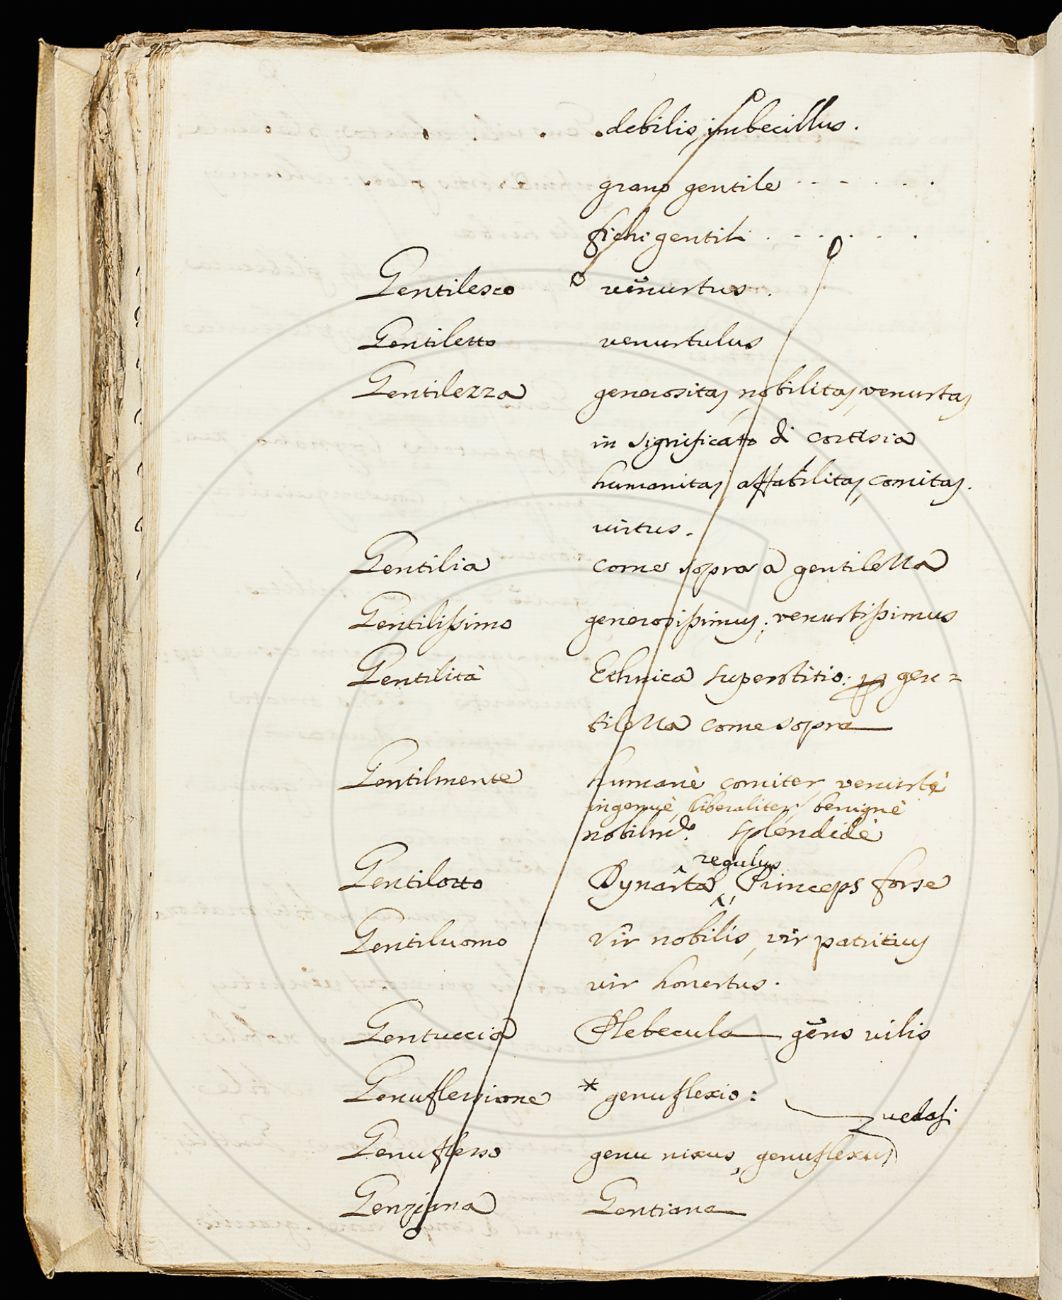 debilis, imbecillus.
grano gentile
fichi gentili
Gentilesco venustus.
Gentiletto venustulus
Gentilezza generositas, nobilitas, venustas
in significato di cortesia
humanitas, affabilitas, comitas.
virtus.
Gentilia come sopra à gentilezza
Gentilissimo generosissimus, venustissimus
Gentilità Ethnica superstitio. gen=
tilezza come sopra
Gentilmente humanè comiter, venustè
ingenuè, liberaliter, benignè
nobilmte. splendidè
regulus
Gentilotto Dynasta, Princeps forse
Gentiluomo Vir nobilis, vir patritius
vir honestus.
Gentuccia Plebecula gens vilis
Genuflessione * genuflexio:
vedasi
Genuflesso genu nixus, genuflexus
Genziana Gentiana